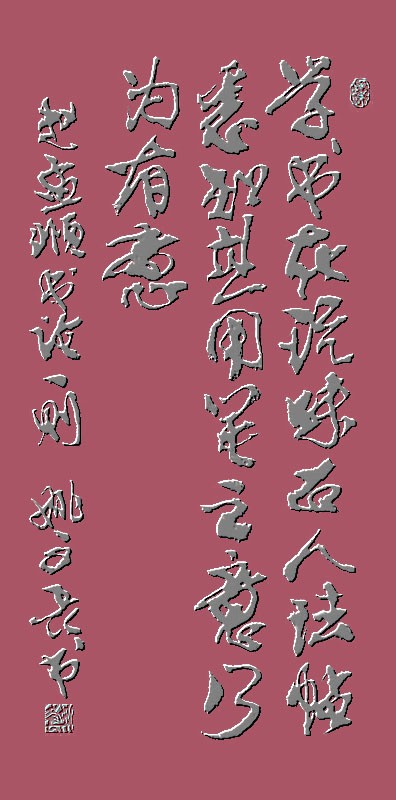 学书在玩味古人法帖
悉知其用笔之意乃
为有益
赵孟頫书论一则 姚 书